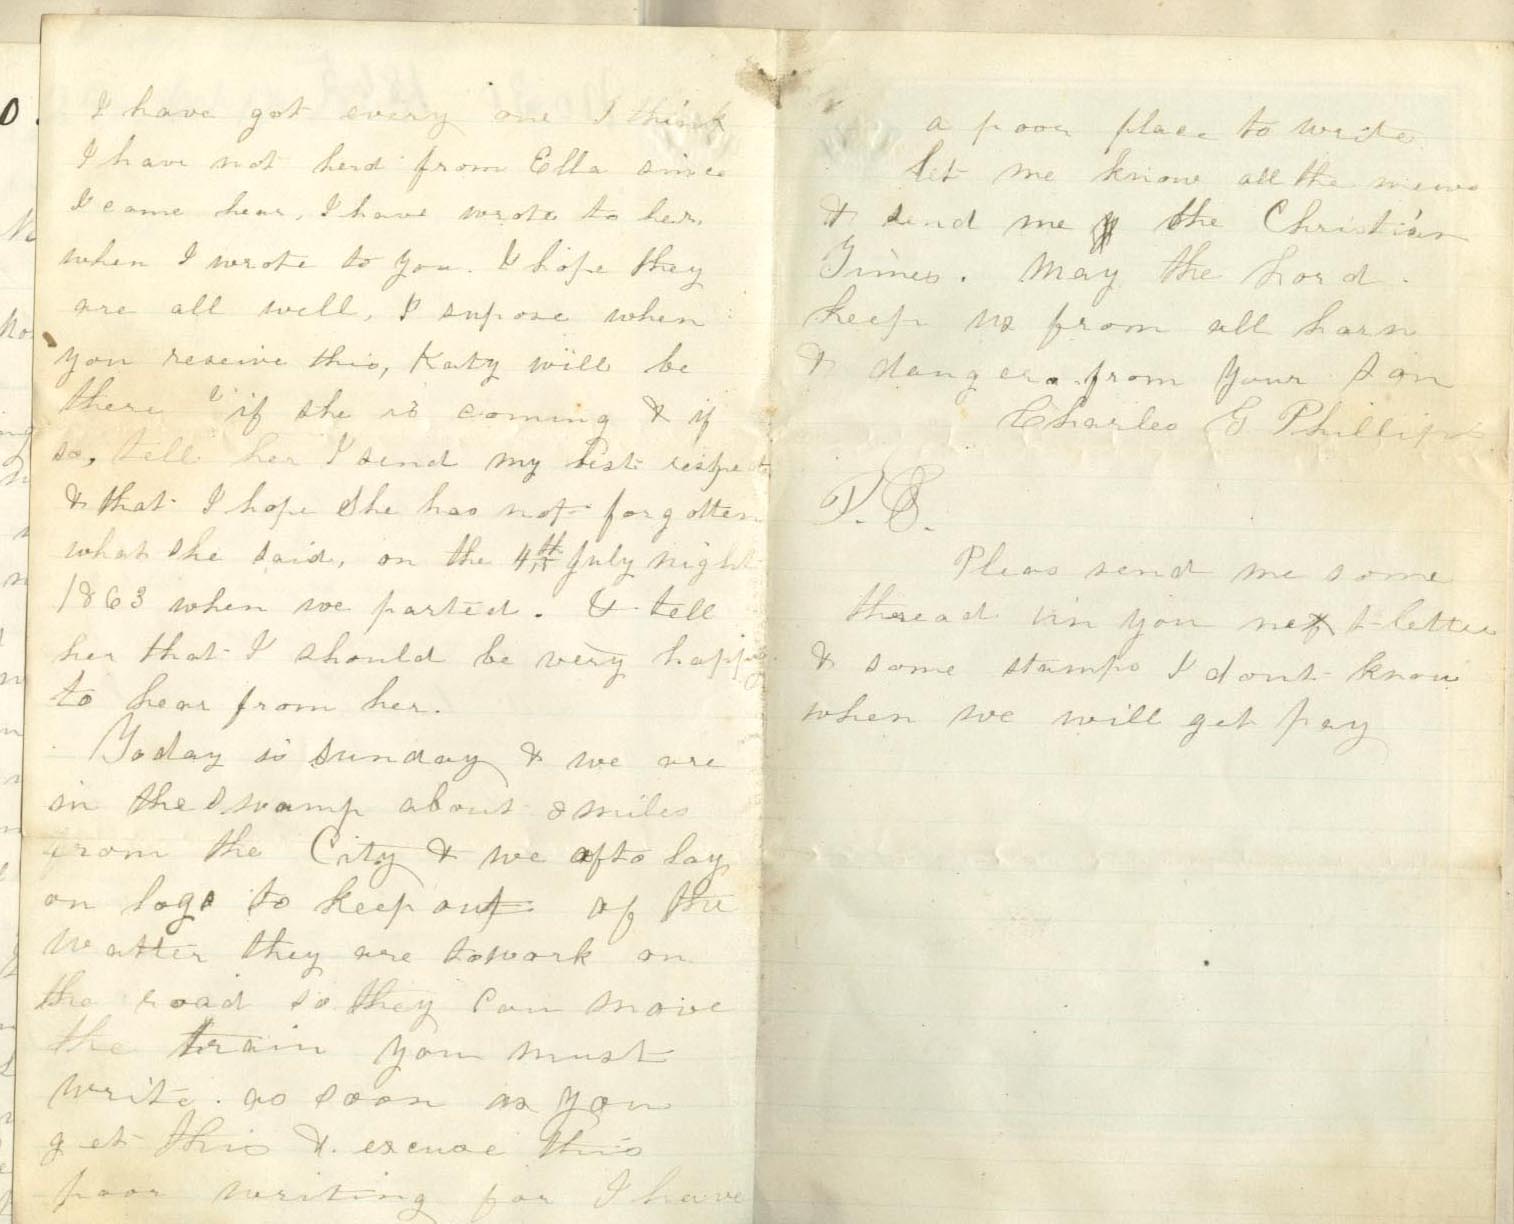 I have got every one I think
I have not herd from Ella since
I came hear, I have wrote to her.
when I wrote to you. I hope they
are all well, I supose when
you reseive this, Katy will be
there if she is coming & if
so, tell her I send my best respects
& that I hope She has not forgotten
what she said, on the 4th July night
1863 when we parted. & tell
her that I should be very happy
to hear from her.
Today is Sunday & we are
in the Swamp about 8 miles
from the City & we afto lay
on logs to keep out of the
watter they are to work on
the road so they can move
the train you must
write. as soon as you
get this & excuse this
poor writing for I have
a poor place to write
let me know all the news
& send me the Christian
Times. May the Lord
keep us from all harn
& danger. from your Son
Charles G Phillips
P.S.
Pleas send me some
thread in you next letter
& some stamps I dont know
when we will get pay